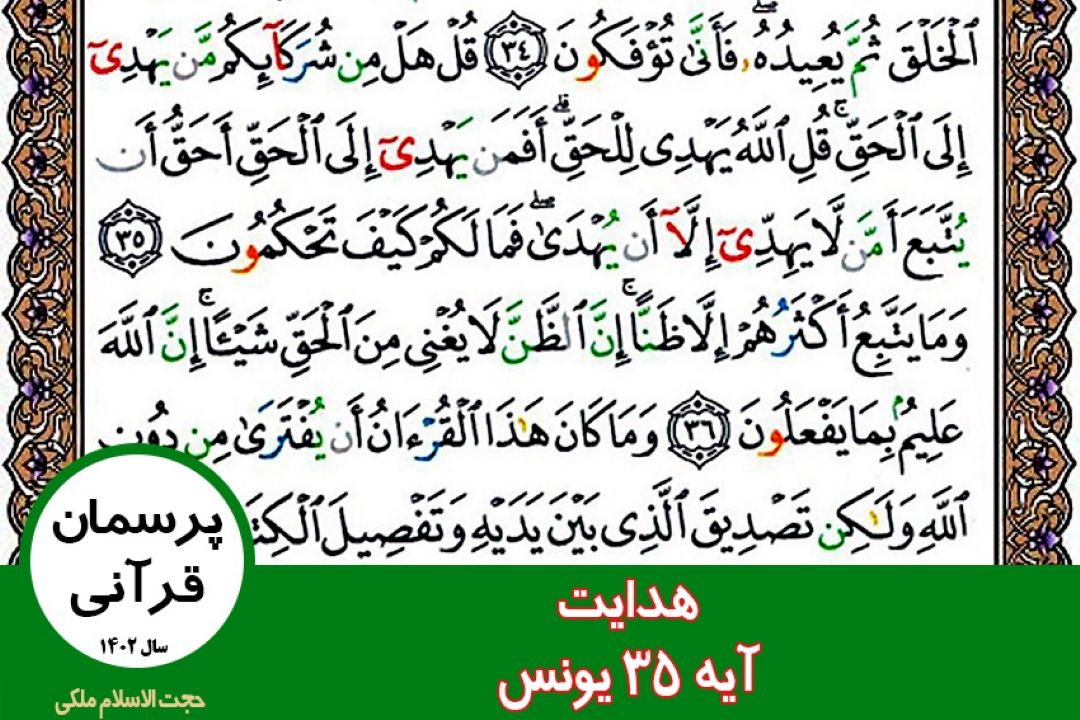 ٱلۡخَلۡقَ ثُمَّ يُعِيدُهُۥۖ فَأَنَّىٰ تُؤۡفَكُونَ ٣٤ قُلۡ هَلۡ مِن شُرَكَآئِكُم مَّن يَهۡدِيٓ
إِلَى ٱلۡحَقِّۚ قُلِ ٱللَّهُ يَهۡدِي لِلۡحَقِّۗ أَفَمَن يَهۡدِيٓ إِلَى ٱلۡحَقِّ أَحَقُّ أَن
يُتَّبَعَ أَمَّن لَّا يَهِدِّيٓ إِلَّآ أَن يُهۡدَىٰۖ فَمَا لَكُمۡ كَيۡفَ تَحۡكُمُونَ ٣٥
وَمَا يَتَّبِعُ أَكۡثَرُهُمۡ إِلَّا ظَنًّاۚ إِنَّ ٱلظَّنَّ لَا يُغۡنِي مِنَ ٱلۡحَقِّ شَيۡـًٔاۚ إِنَّ ٱللَّهَ
عَلِيمُۢ بِمَا يَفۡعَلُونَ ٣٦ وَمَا كَانَ هَٰذَا ٱلۡقُرۡءَانُ أَن يُفۡتَرَىٰ مِن دُونِ
ٱللَّهِ وَلَٰكِن تَصۡدِيقَ ٱلَّذِي بَيۡنَ يَدَيۡهِ وَتَفۡصِيلَ
پرسمان
قرآنی
سال ۱۴۰۲
حجت الاسلام ملکی
هدایت
آیه ۳۵ یونس